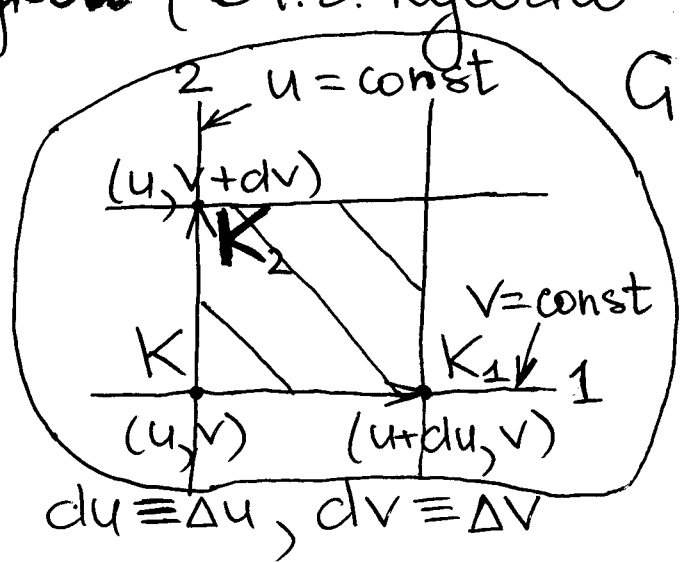 2 u = const G
(u, v+dv)
K₂
v = const
K K₁ 1
(u, v) (u+du, v)
du ≡ Δu, dv ≡ Δv